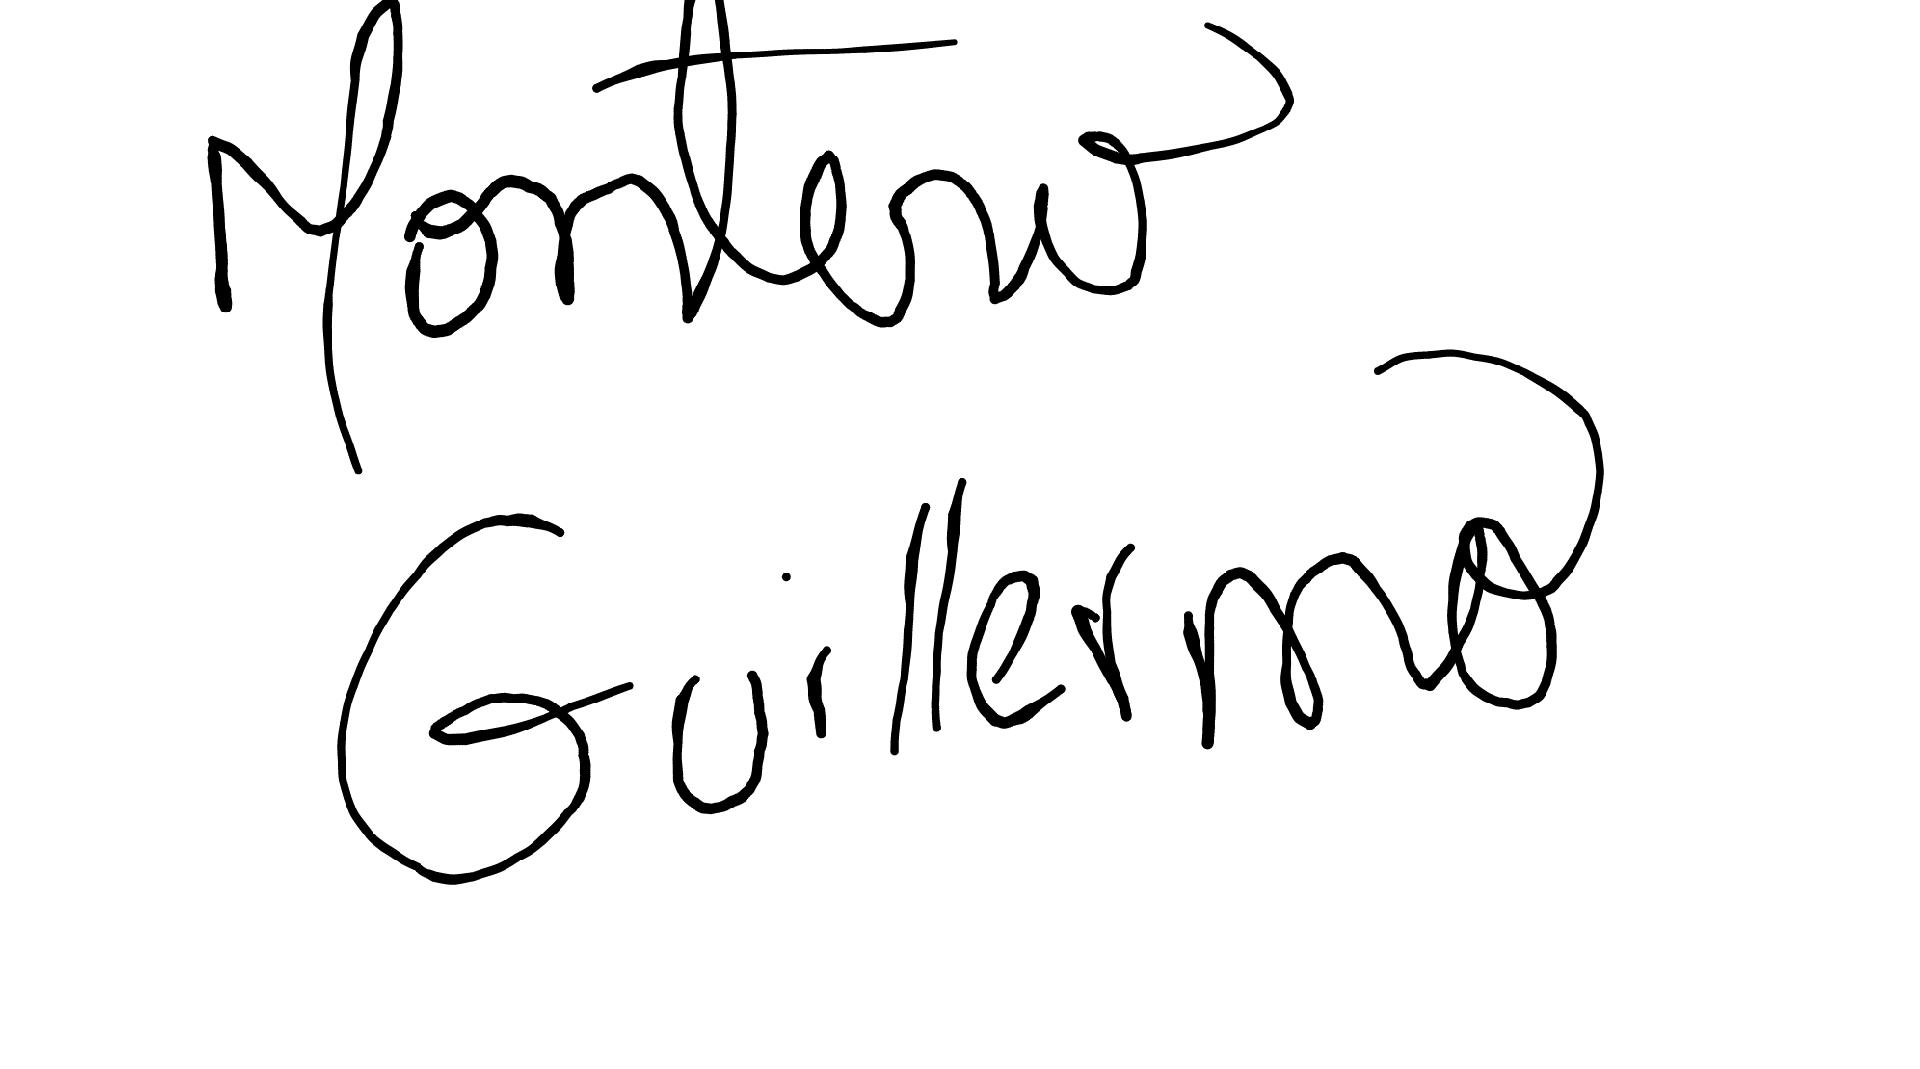 Montero
Guillermo